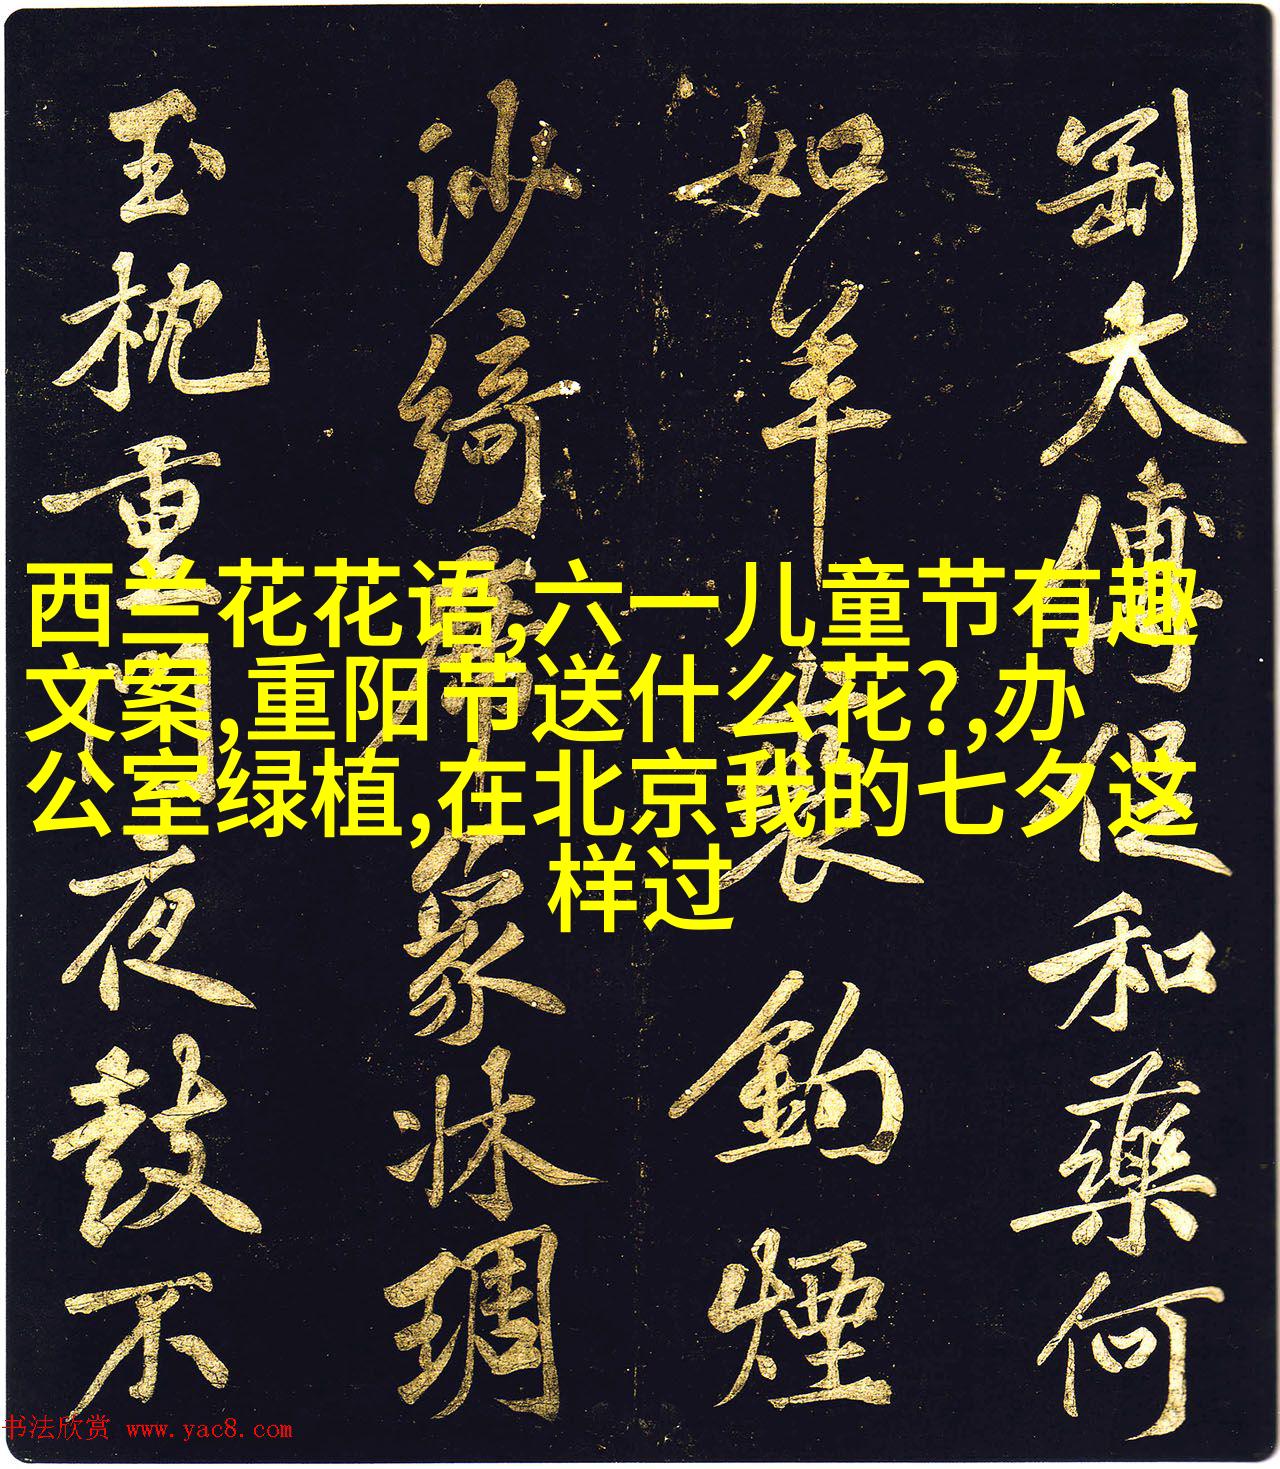 西兰花花语,六一儿童节有趣
文案,重阳节送什么花?,办
公室绿植,在北京我的七夕这
样过
剛太傅促和藥何
如羊裘釣煙
沙綺席象牀琱
玉枕重門夜鼓不
书法欣赏 www.yac8.com